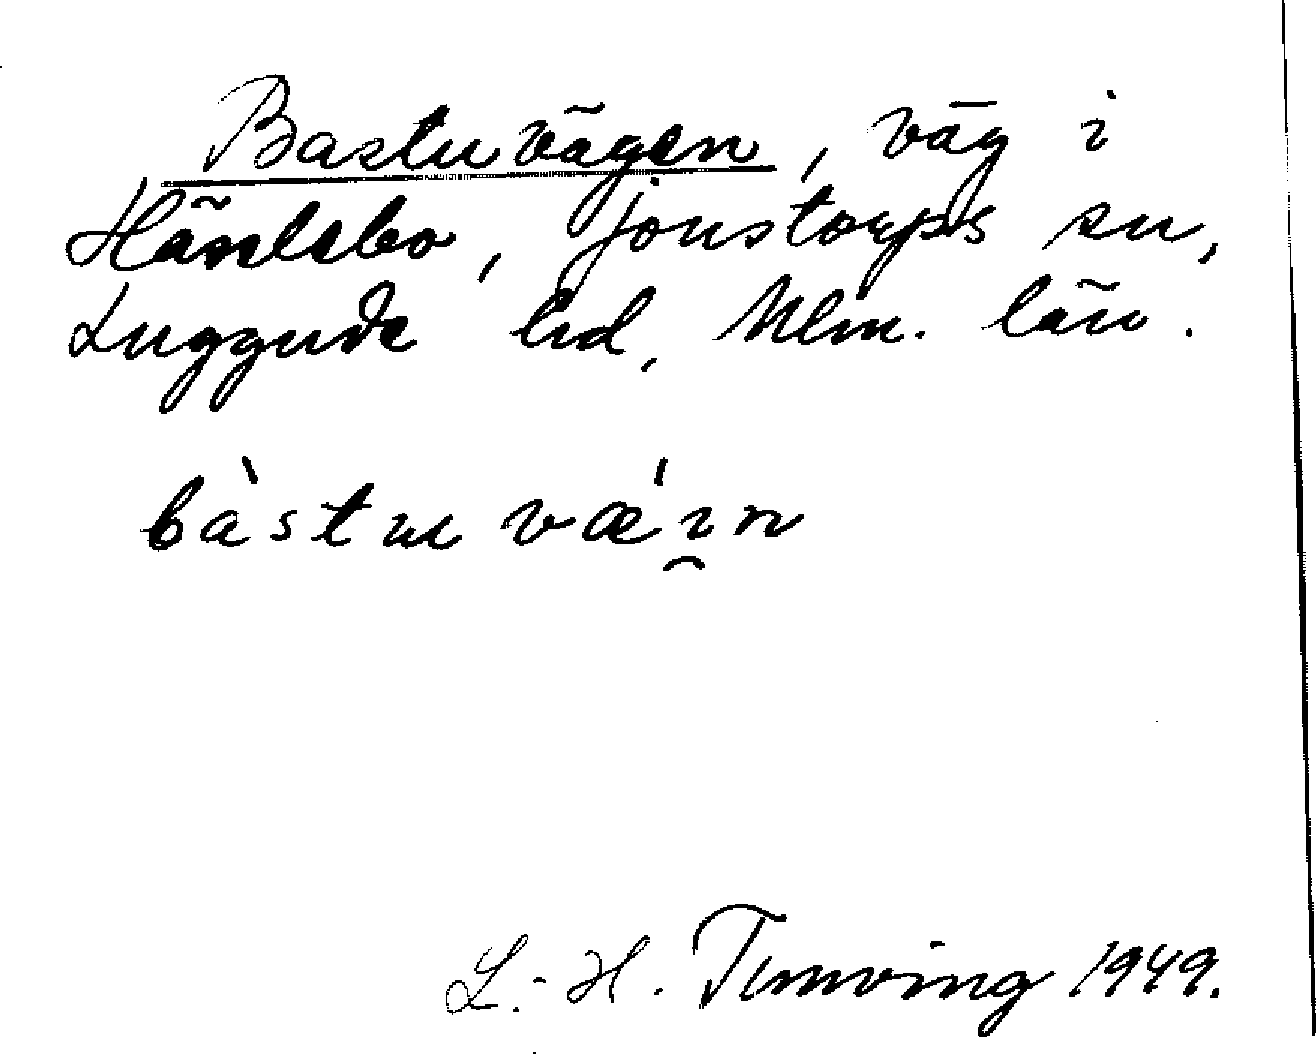 Bastuvägen, väg i
Jonstorps sn,
Luggude hd, Mlm. län.
bàstu vǽi̯n
L.-H. Tunving 1949.